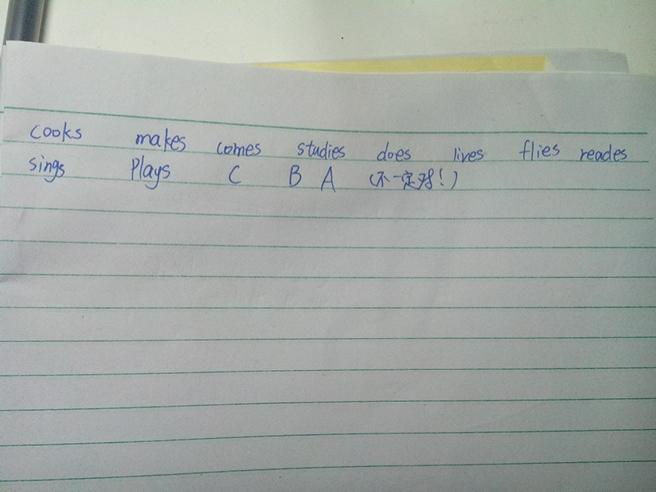 cooks makes comes studies does lives flies reades
sings Plays C B A (不一定对!)